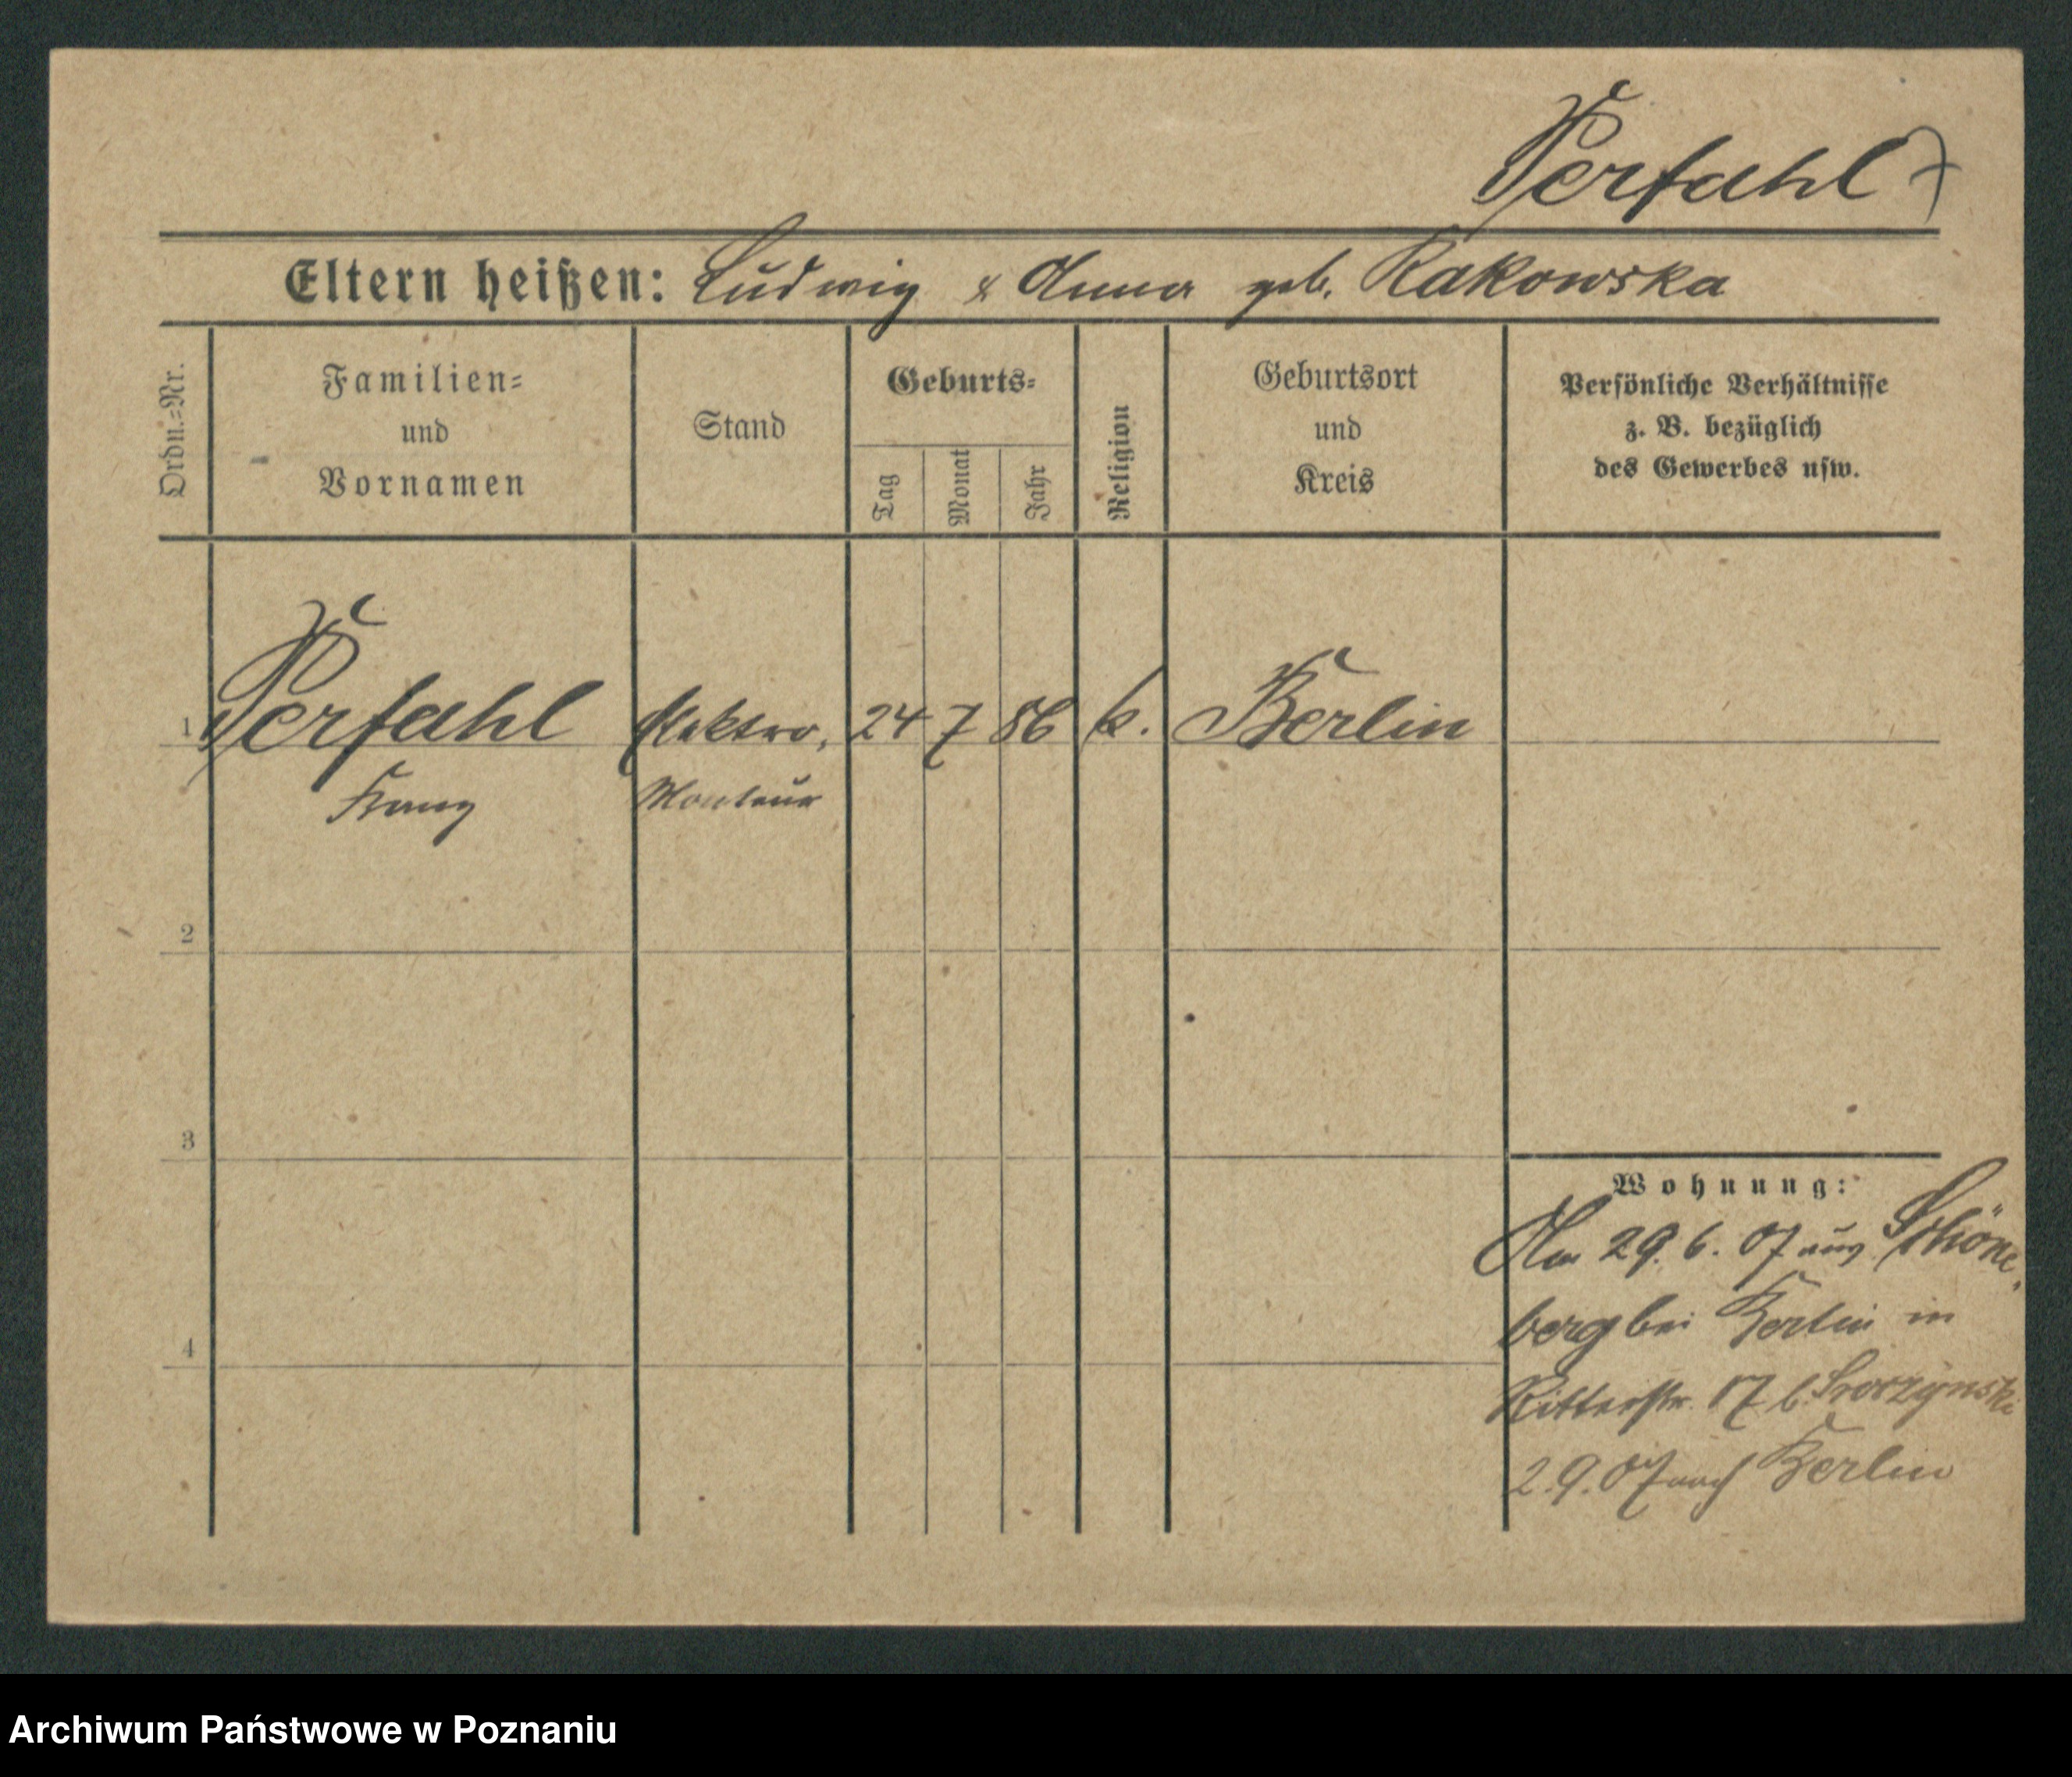 Perfahl
Eltern heißen: Ludwig & Anna geb. Rakowska
Ordn.=Nr.
Familien=
und
Vornamen
Stand
Geburts=
Tag
Monat
Jahr
Religion
Geburtsort
und
Kreis
Persönliche Verhältnisse
z. B. bezüglich
des Gewerbes usw.
1 Perfahl Elektro, 24 7 86 k. Berlin
Franz Monteur
2
3
4
Wohnung:
Am 29. 6. 07 aus Schöne
berg bei Berlin in
Ritterstr. 17 b.
2.9.07 nach Berlin
Archiwum Państwowe w Poznaniu